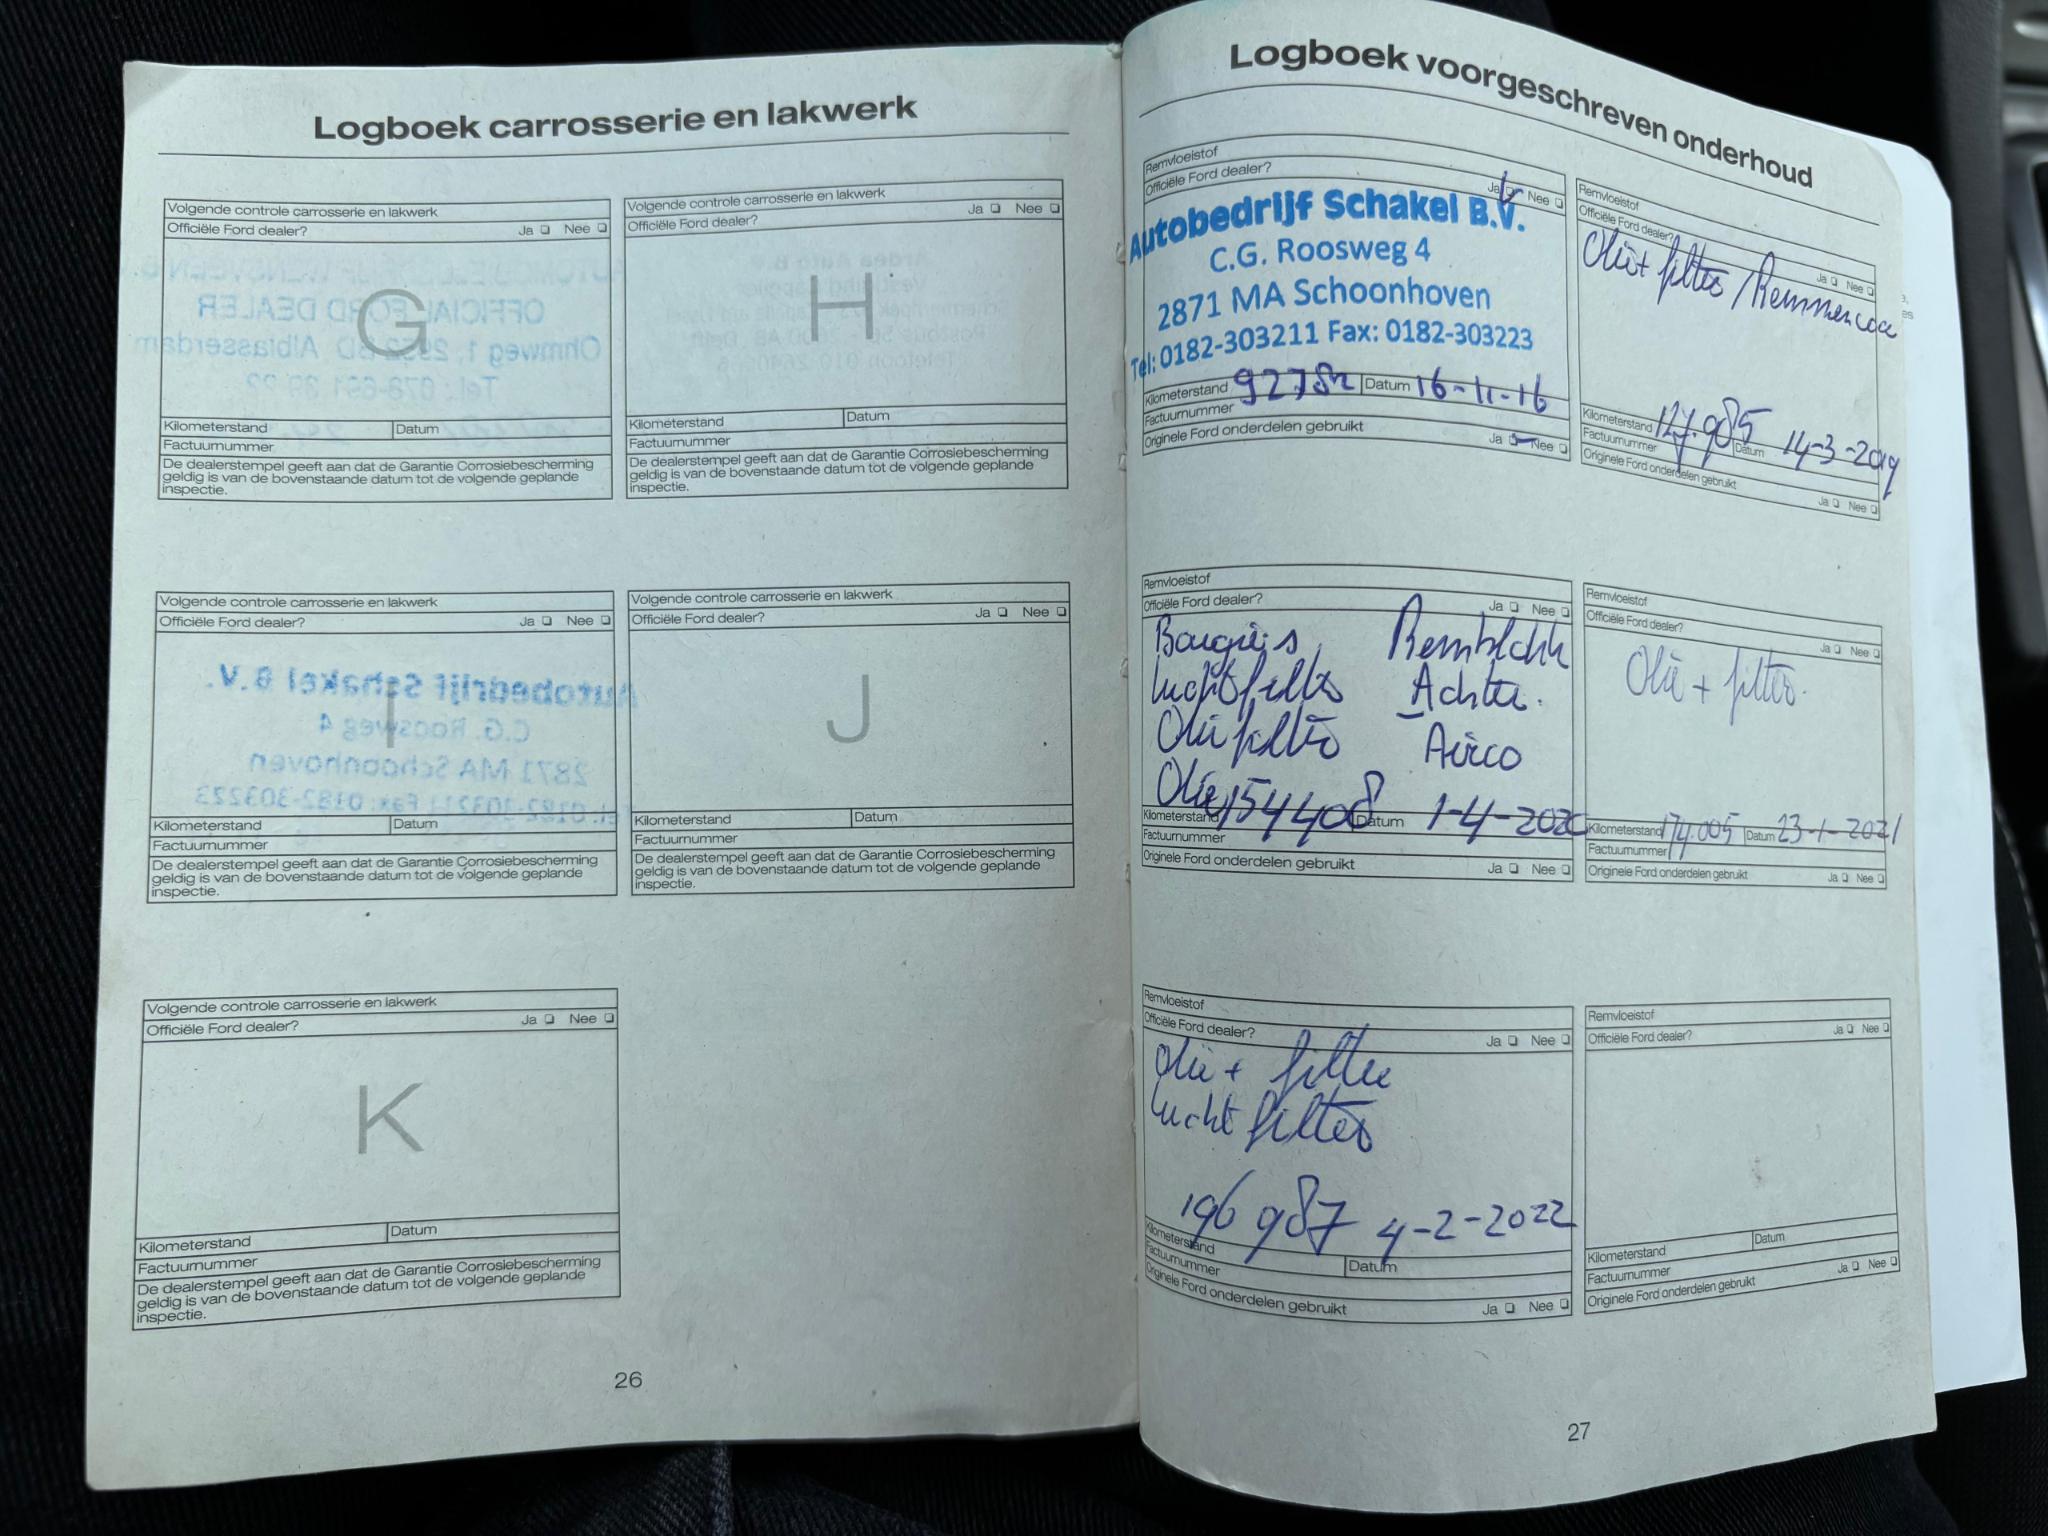 Logboek carrosserie en lakwerk
Volgende controle carrosserie en lakwerk
Officiële Ford dealer? Ja Nee
G
Kilometerstand Datum
Factuurnummer
De dealerstempel geeft aan dat de Garantie Corrosiebescherming
geldig is van de bovenstaande datum tot de volgende geplande
inspectie.
Volgende controle carrosserie en lakwerk
Officiële Ford dealer? Ja Nee
H
Kilometerstand Datum
Factuurnummer
De dealerstempel geeft aan dat de Garantie Corrosiebescherming
geldig is van de bovenstaande datum tot de volgende geplande
inspectie.
Volgende controle carrosserie en lakwerk
Officiële Ford dealer? Ja Nee
I
Kilometerstand Datum
Factuurnummer
De dealerstempel geeft aan dat de Garantie Corrosiebescherming
geldig is van de bovenstaande datum tot de volgende geplande
inspectie.
Volgende controle carrosserie en lakwerk
Officiële Ford dealer? Ja Nee
J
Kilometerstand Datum
Factuurnummer
De dealerstempel geeft aan dat de Garantie Corrosiebescherming
geldig is van de bovenstaande datum tot de volgende geplande
inspectie.
Volgende controle carrosserie en lakwerk
Officiële Ford dealer? Ja Nee
K
Kilometerstand Datum
Factuurnummer
De dealerstempel geeft aan dat de Garantie Corrosiebescherming
geldig is van de bovenstaande datum tot de volgende geplande
inspectie.
26
Logboek voorgeschreven onderhoud
Remvloeistof
Officiële Ford dealer? Ja Nee
Autobedrijf Schakel B.V.
C.G. Roosweg 4
2871 MA Schoonhoven
Tel: 0182-303211 Fax: 0182-303223
Kilometerstand Datum 16-11-16
Factuurnummer
Originele Ford onderdelen gebruikt Ja Nee
Remvloeistof
Officiële Ford dealer? Ja Nee
Olie + filter /
Kilometerstand 127.985 Datum 14-3-2019
Factuurnummer
Originele Ford onderdelen gebruikt Ja Nee
Remvloeistof
Officiële Ford dealer? Ja Nee
Bougies Remblokk
luchtfilter Achter.
Oliefilter Airco
Olie
Kilometerstand 154408 Datum 1-4-2020
Factuurnummer
Originele Ford onderdelen gebruikt Ja Nee
Remvloeistof
Officiële Ford dealer? Ja Nee
Olie + filter.
Kilometerstand 174.005 Datum 23-1-2021
Factuurnummer
Originele Ford onderdelen gebruikt Ja Nee
Remvloeistof
Officiële Ford dealer? Ja Nee
olie + filter
lucht filter
196 987 4-2-2022
Kilometerstand Datum
Factuurnummer
Originele Ford onderdelen gebruikt Ja Nee
Remvloeistof
Officiële Ford dealer? Ja Nee
Kilometerstand Datum
Factuurnummer
Originele Ford onderdelen gebruikt Ja Nee
27